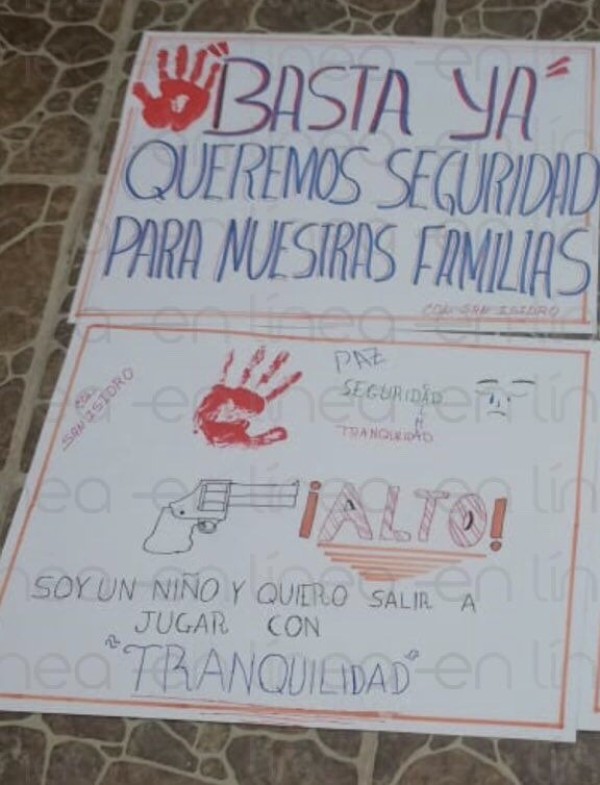 "BASTA YA"
QUEREMOS SEGURIDAD
PARA NUESTRAS FAMILIAS
COL. SAN ISIDRO
COL.
SAN ISIDRO
PAZ
SEGURIDAD
TRANQUILIDAD
¡ALTO!
SOY UN NIÑO Y QUIERO SALIR A
JUGAR CON
"TRANQUILIDAD"
en línea